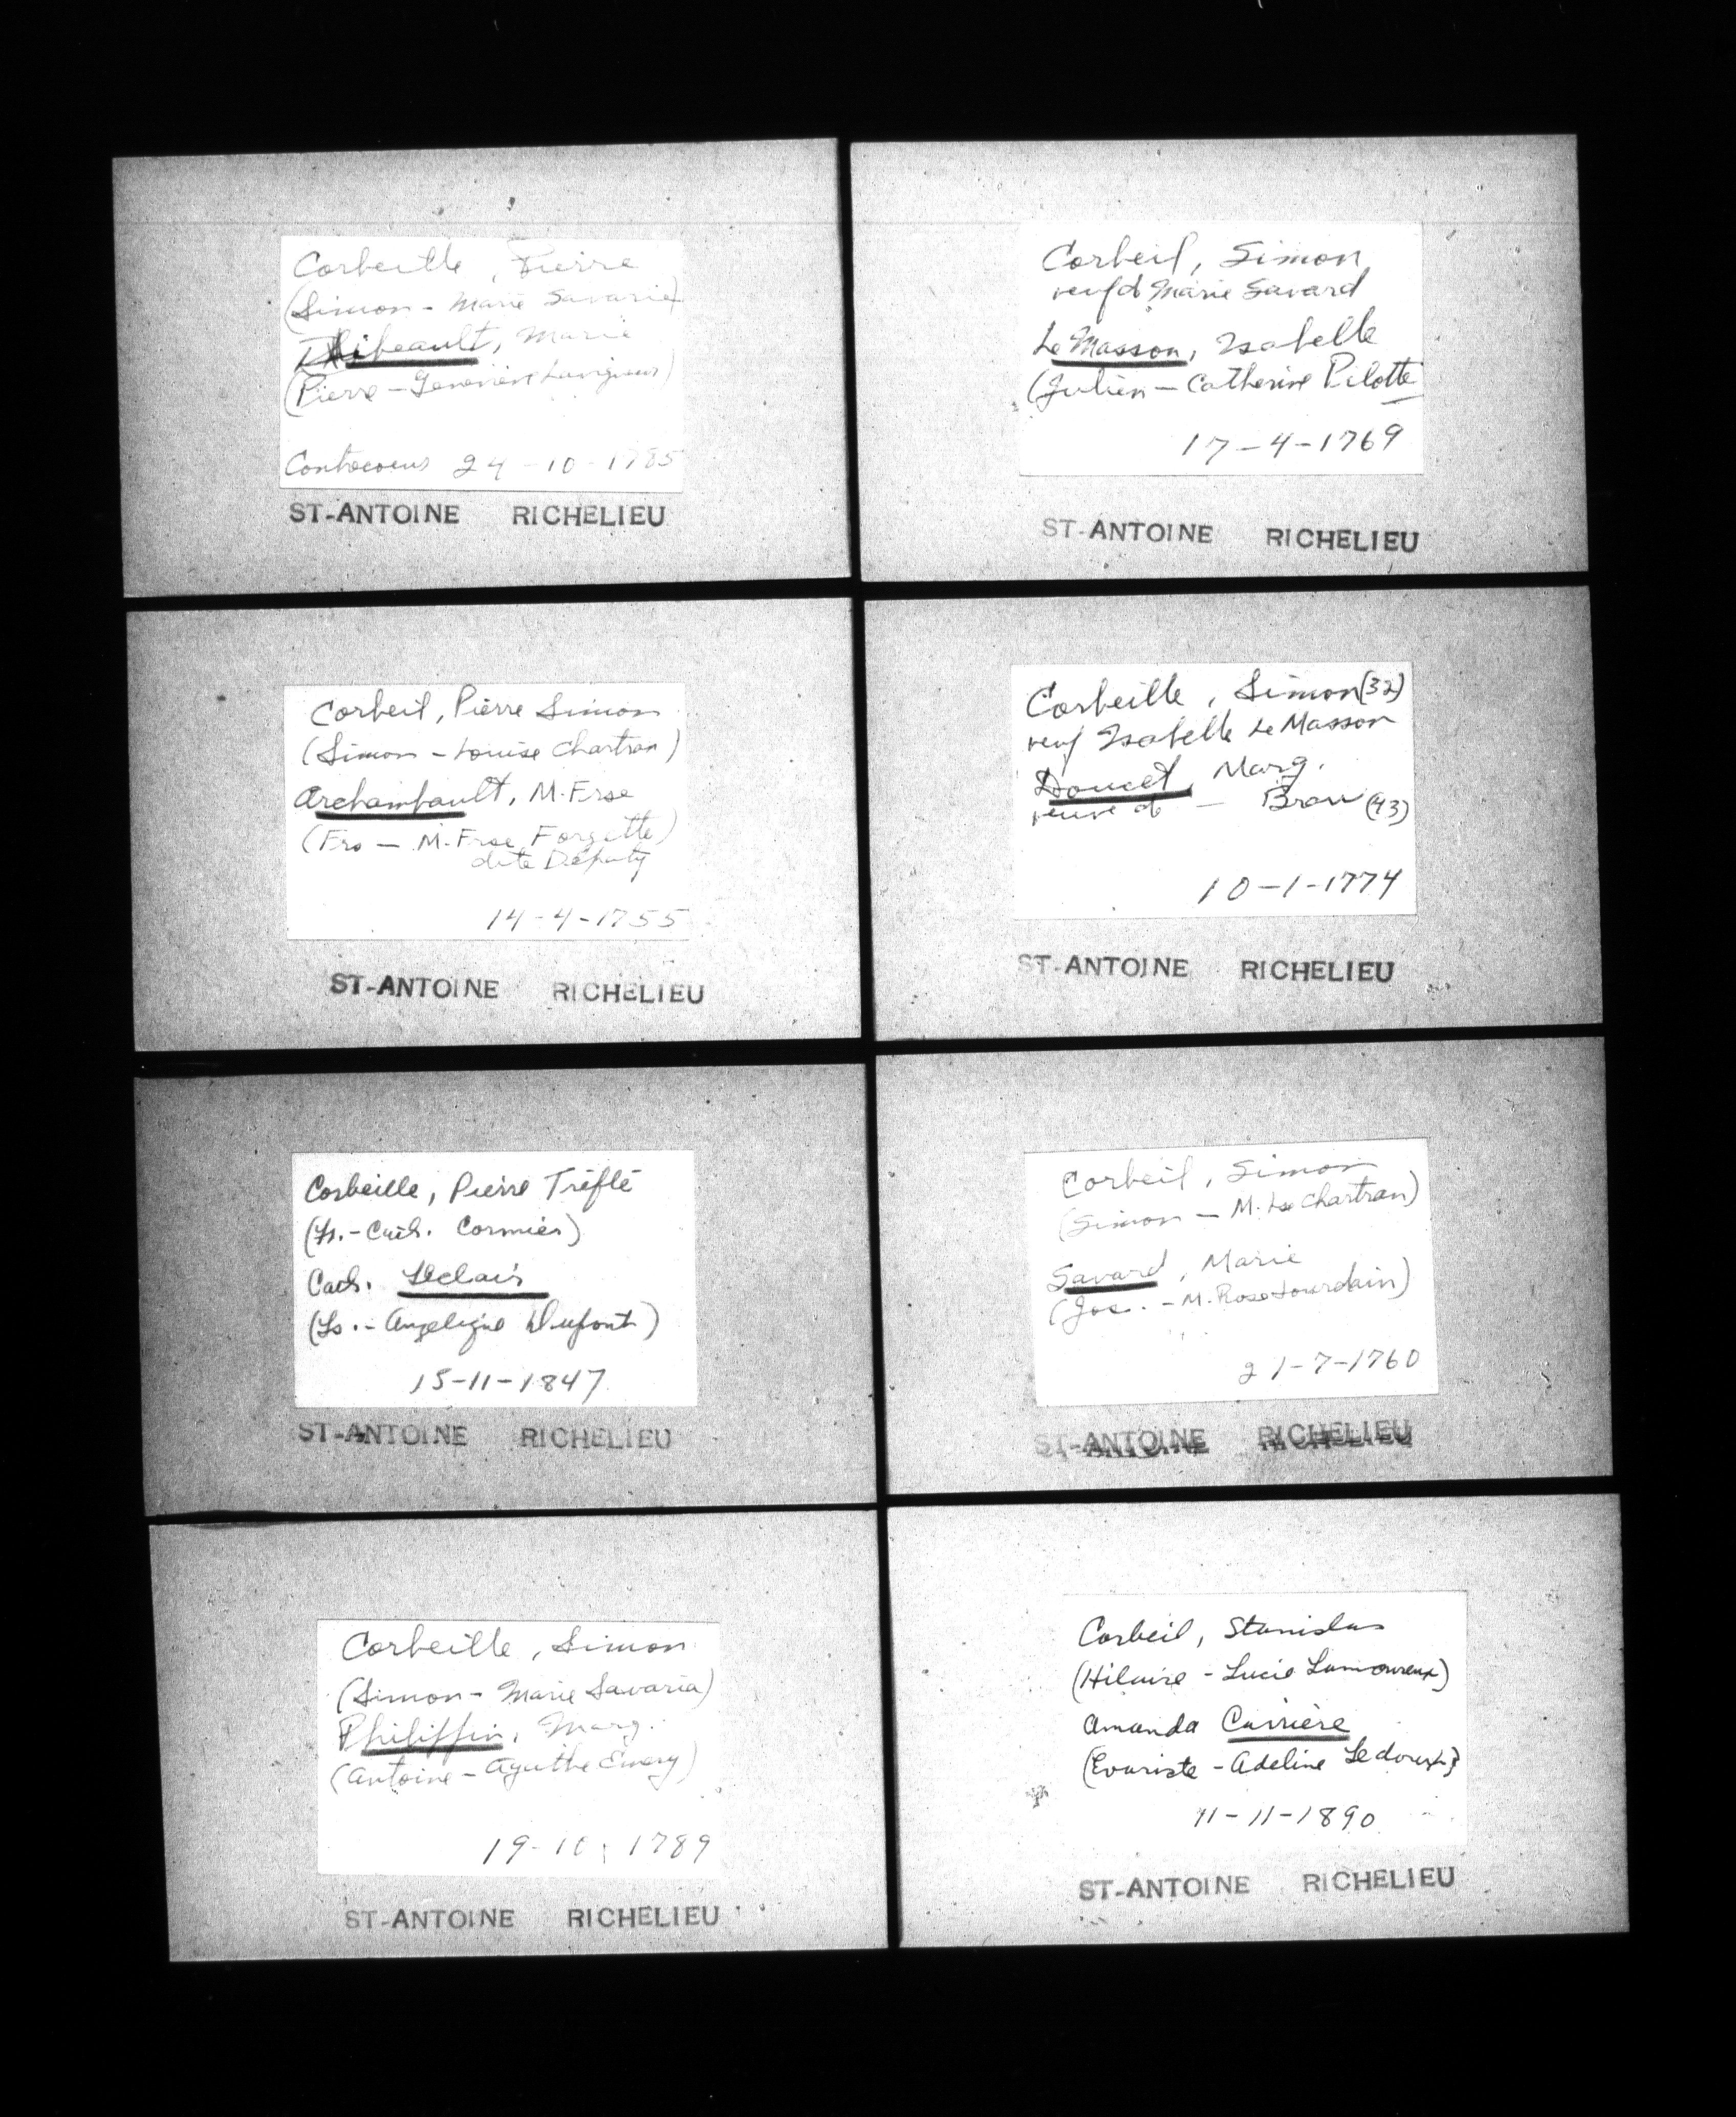 Corbeille, Pierre
(Simon - Marie Savarie)
Thibeault, Marie
(Pierre - Geneviève Lavigueur)
Contrecoeur 24-10-1785
ST-ANTOINE RICHELIEU
Corbeil, Simon
veuf d Marie Savard
Le Masson, Isabelle
(Julien - Catherine Pilotte
17-4-1769
ST-ANTOINE RICHELIEU
Corbeil, Pierre Simon
(Simon - Louise Chartran)
Archambault, M. Frse
(Frs - M. Frse Forgette)
dite Deputy
14-4-1755
ST-ANTOINE RICHELIEU
Corbeille, Simon (32)
veuf Isabelle Le Masson
Doucet, Marg.
veuve de - Brau (43)
10-1-1774
ST-ANTOINE RICHELIEU
Corbeille, Pierre Tréflé
(Fs. - Cath. Cormier)
Cath. Leclair
(Ls. - Angelique Dupont)
15-11-1847
ST-ANTOINE RICHELIEU
Corbeil, Simon
(Simon - M. Lse Chartran)
Savard, Marie
(Jos. - M. Rose Jourdain)
21-7-1760
ST-ANTOINE RICHELIEU
Corbeille, Simon
(Simon - Marie Savaria)
Philippin, Marg.
(Antoine - Agathe Emery)
19-10-1789
ST-ANTOINE RICHELIEU
Corbeil, Stanislas
(Hilaire - Lucie Lamoureux)
Amanda Carrière
(Evariste - Adeline Ledoux)
11-11-1890
ST-ANTOINE RICHELIEU